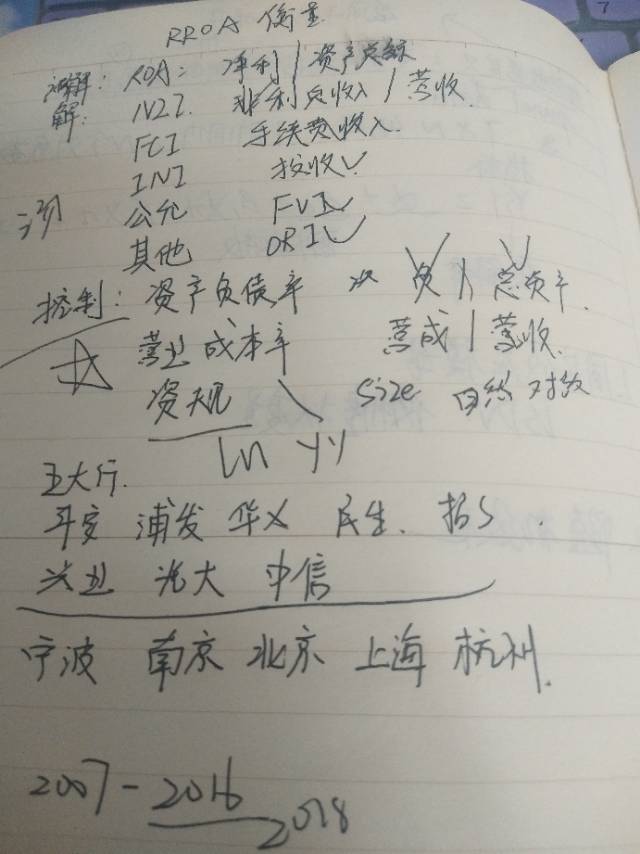 RROA 衡量
被解释: ROA: 净利 / 资产总额
解: N2I. 非利息收入 / 营收
FCI 手续费收入
INI 投收✓
公允 FVI✓
其他 ORI✓
控制: 资产负债率 负 / 总资产.
☆ 营业成本率 营成 / 营收.
资规 Size 自然对数
ln yy
五大行.
平安 浦发 华X 民生. 招S.
兴业 光大 中信
宁波 南京 北京 上海 杭州.
2007-2016
2018